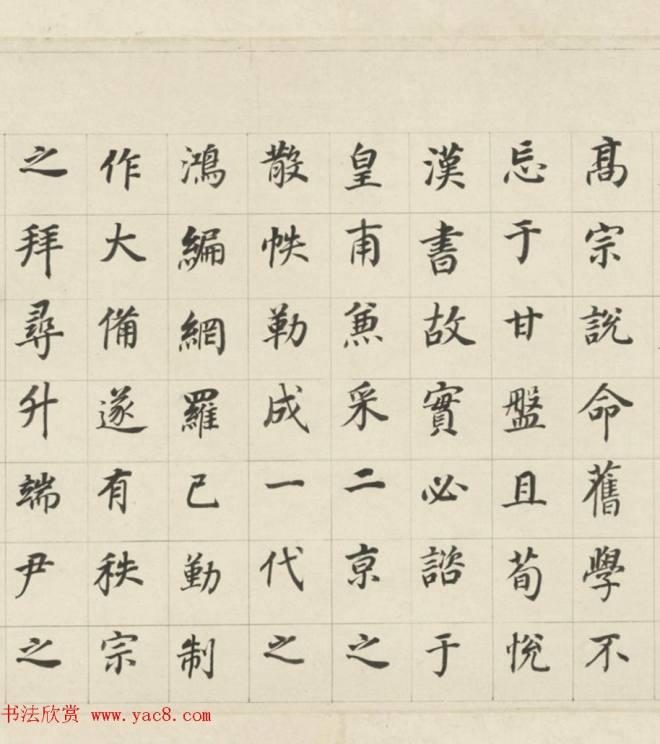 高宗說命舊學不
忘于甘盤且荀悅
漢書故實必諮于
皇甫兼采二京之
散帙勒成一代之
鴻編網羅已勤制
作大備遂有秩宗
之拜尋升端尹之
书法欣赏 www.yac8.com